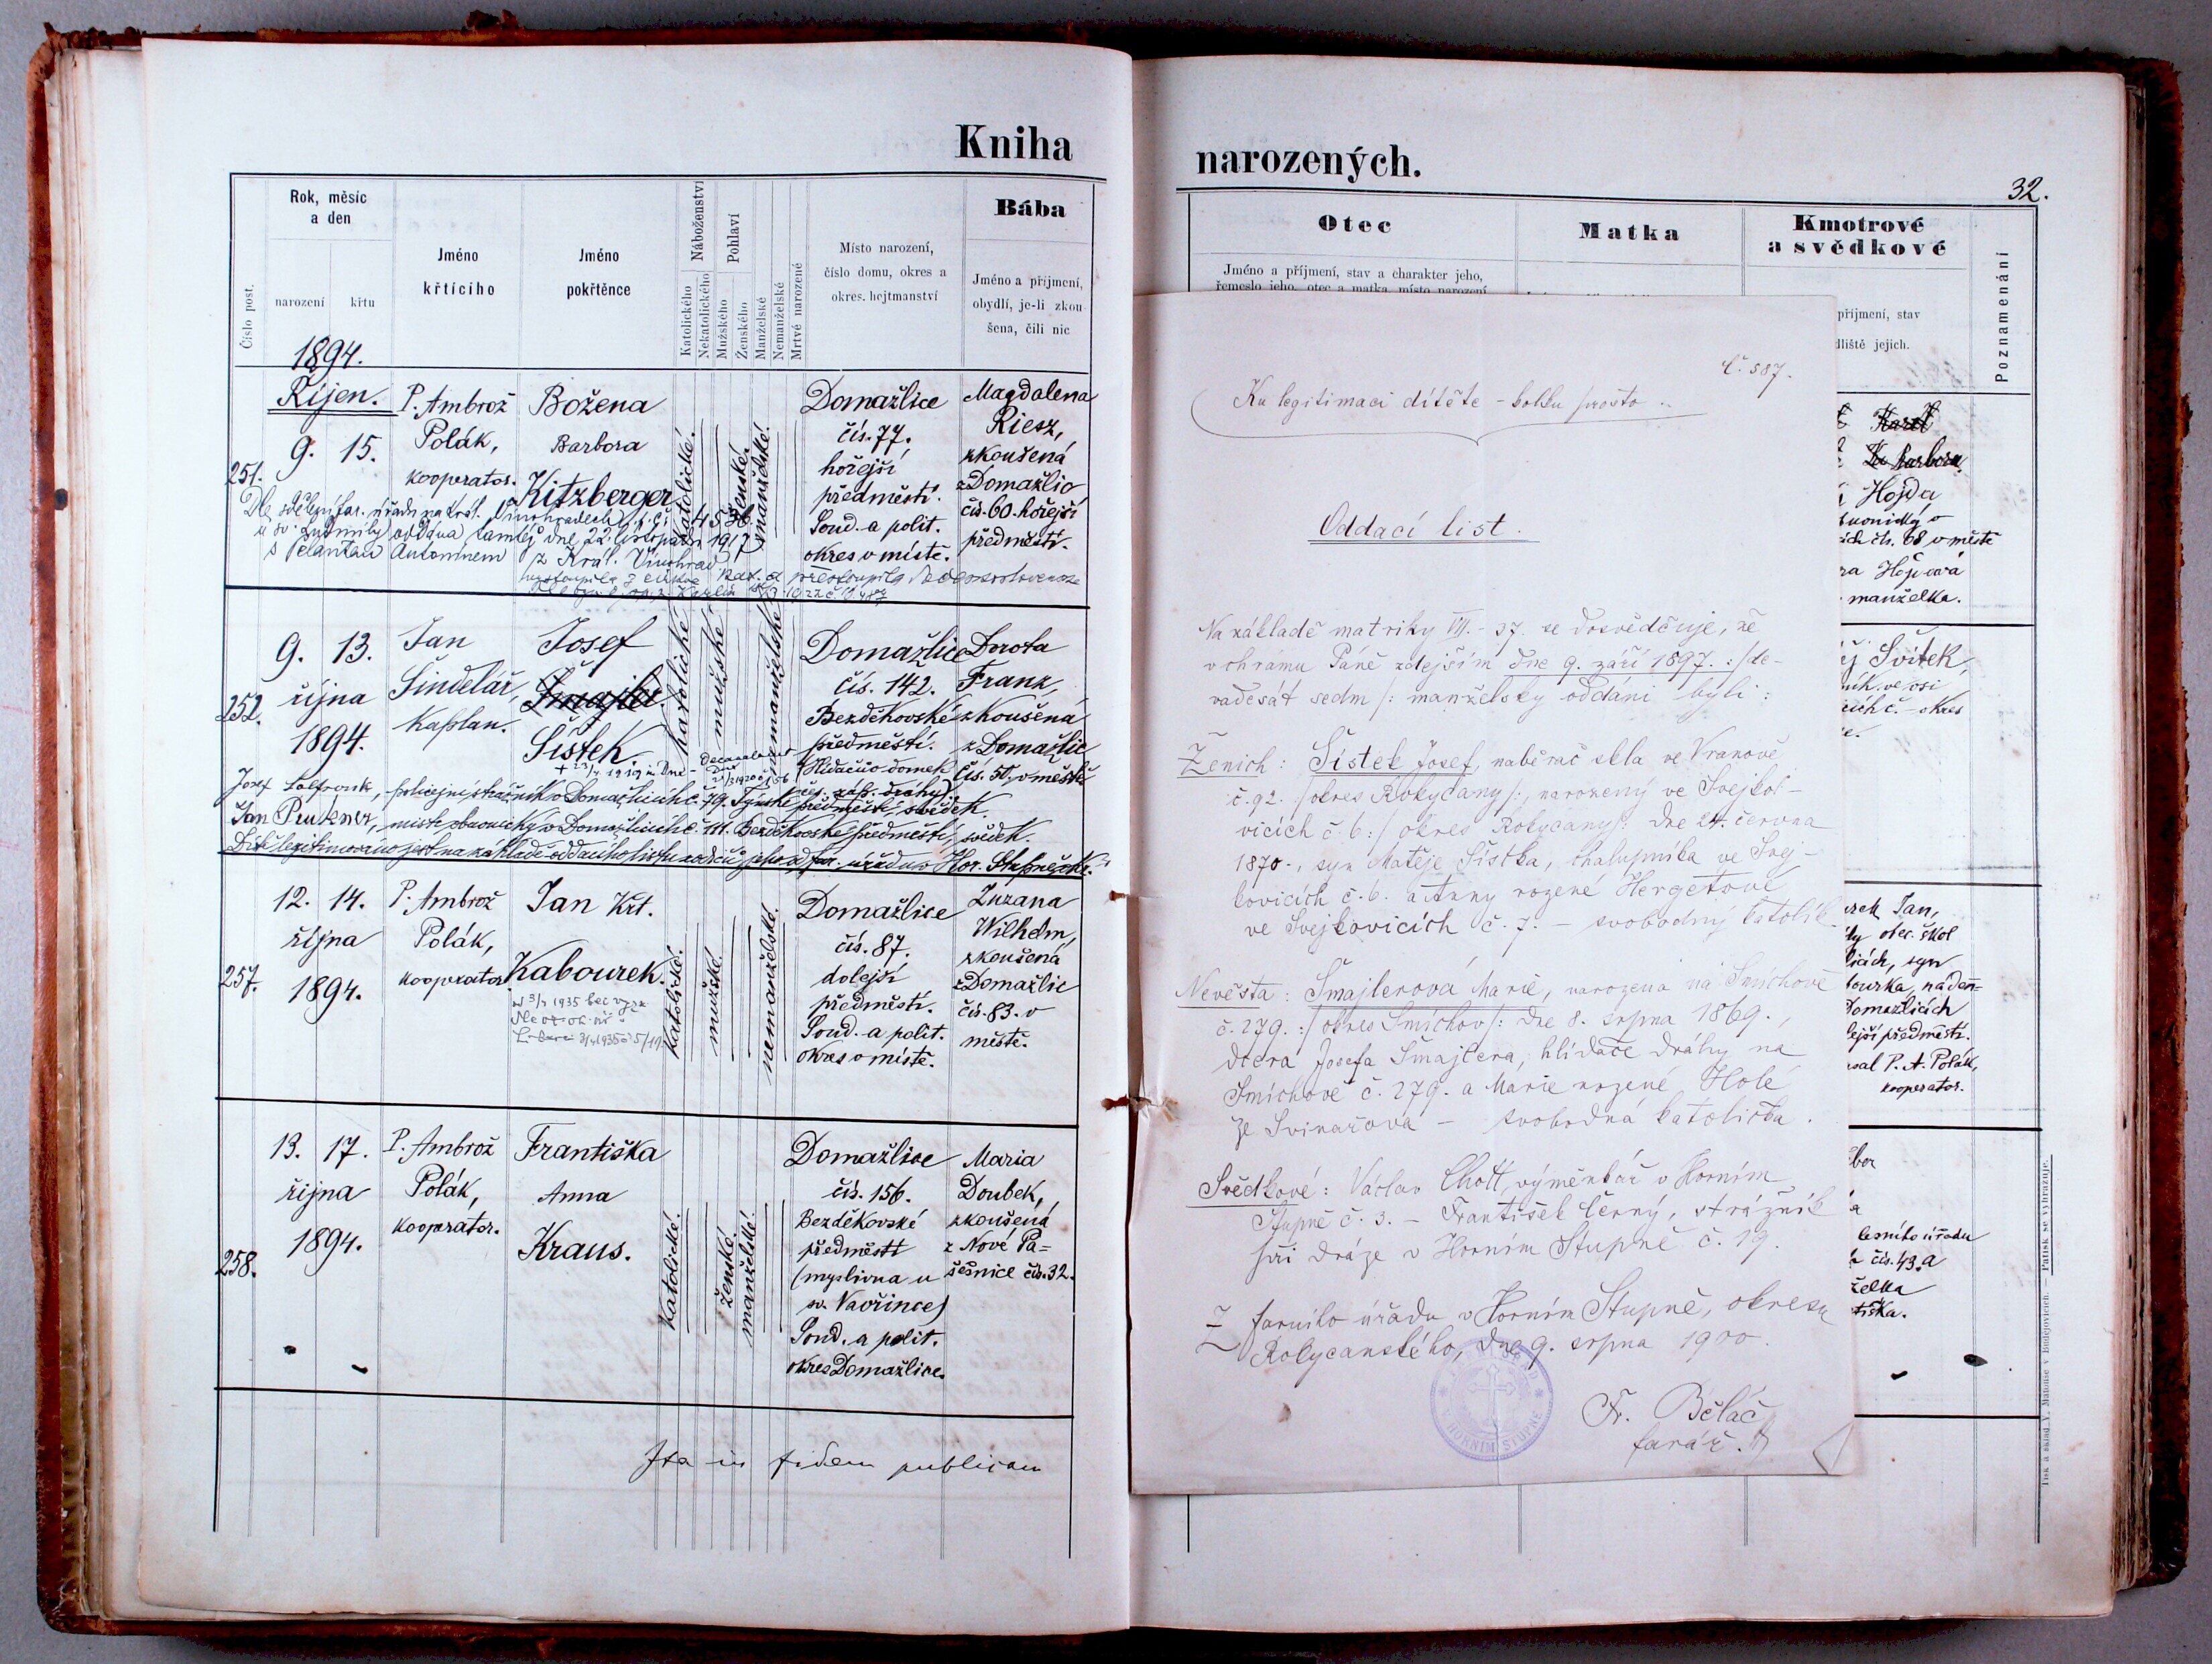 Kniha
Číslo post.
Rok, měsíc
a den
narození
křtu
Jméno
křtícího
Jméno
pokřtěnce
Náboženství
Katolického
Nekatolického
Pohlaví
Mužského
Ženského
Manželské
Nemanželské
Mrtvé narozené
Místo narození,
číslo domu, okres a
okres. hejtmanství
Bába
Jméno a příjmení,
obydlí, je-li zkou-
šena, čili nic
1894.
Říjen.
251.
9. 15.
P. Ambrož
Polák,
kooperator.
Božena
Barbora
Kitzberger
katolické.
ženské.
manželské.
Domažlice
čís. 77.
hořejší
předměstí.
Soud. a polit.
okres v místě.
Magdalena
Riesz,
zkoušená
z Domažlic
čís. 60. hořejší
předměstí.
Dle sdělení far. úřadu na král. Vinohradech
u sv. Ludmily oddána tamtéž dne 22. listopadu 1917
s Antonínem z Král. Vinohrad
252.
9. 13.
října
1894.
Jan
Šindelář,
kaplan.
Josef
Šmajler.
Šístek
katolické
mužské
nemanželské
Domažlice
čís. 142.
Bezděkovské
předměstí.
Dorota
Frank,
zkoušená
z Domažlic
čís. 50. v městě
Josef policejní strážník v Domažlicích č. 79. Týnské předměstí, svědek.
Jan v Domažlicích č. 111. Bezděkovské předměstí, svědek.
Dítě legitimováno jest na základě oddacího listu rodičů jeho far. úřadu v Hor. Stupně
257.
12. 14.
října
1894.
P. Ambrož
Polák,
kooperator
Jan Křt.
Kabourek.
katolické.
mužské.
nemanželské.
Domažlice
čís. 87.
dolejší
předměstí.
Soud. a polit.
okres v místě.
Zuzana
Wilhelm,
zkoušená
z Domažlic
čís. 83. v
městě.
258.
13. 17.
října
1894.
P. Ambrož
Polák,
kooperator.
Františka
Anna
Kraus.
katolické.
ženské.
manželské.
Domažlice
čís. 156.
Bezděkovské
předměstí
(myslivna u
sv. Vavřince)
Soud. a polit.
okres Domažlice.
Maria
Doubek,
zkoušená
z Nové Pa-
sešnice čís. 32.
Ita in fidem publicam
narozených.
32.
Otec
Jméno a příjmení, stav a charakter jeho,
řemeslo jeho, otec a matka, místo narození
Matka
Kmotrové
a svědkové
příjmení, stav
dliště jejich.
Poznamenání
Karel
Barbora
Hojda
čís. 68 v městě
manželka.
Svítek,
Jan,
obec. škol
syn
Domažlicích
lejší předměstí.
P. A. Polák,
kooperator.
lesního úřadu
čís. 43. a
želka
tiška.
Č. 587.
Ku legitimaci dítěte – kolku prosto.
Oddací list.
Na základě matriky VII. – 37. se dosvědčuje, že
v chrámu Páně zdejším dne 9. září 1897. :/de-
vadesát sedm/: manželsky oddáni byli:
Ženich: Šístek Josef, naběrač skla ve Vranově
č. 92. :/okres Rokycany/:, narozený ve Svejkol-
vicích č. 6 :/okres Rokycany/: dne 24. června
1870., syn Matěje Šístka, chalupníka ve Svej-
kovicích č. 6. a Anny rozené Hergetové
ve Svejkovicích č. 7. – svobodný katolík
Nevěsta: Šmajlerová Marie, narozená na Smíchově
č. 279. :/okres Smíchov/: dne 8. srpna 1869.,
dcera Josefa Šmajlera, hlídače dráhy na
Smíchově č. 279. a Marie rozené Holé
ze Svinařova – svobodná katolička.
Svědkové: Václav Chott, výměnkář v Horním
Stupně č. 3. – František Černý, strážník
při dráze v Horním Stupně č. 19.
Z farního úřadu v Horním Stupně, okresu
Rokycanského, dne 9. srpna 1900.
V HORNÍM STUPNĚ
Fr. Běláč
farář.
Tisk a sklad V. Matouse v Hodějovicích. — Patisk se vyhrazuje.